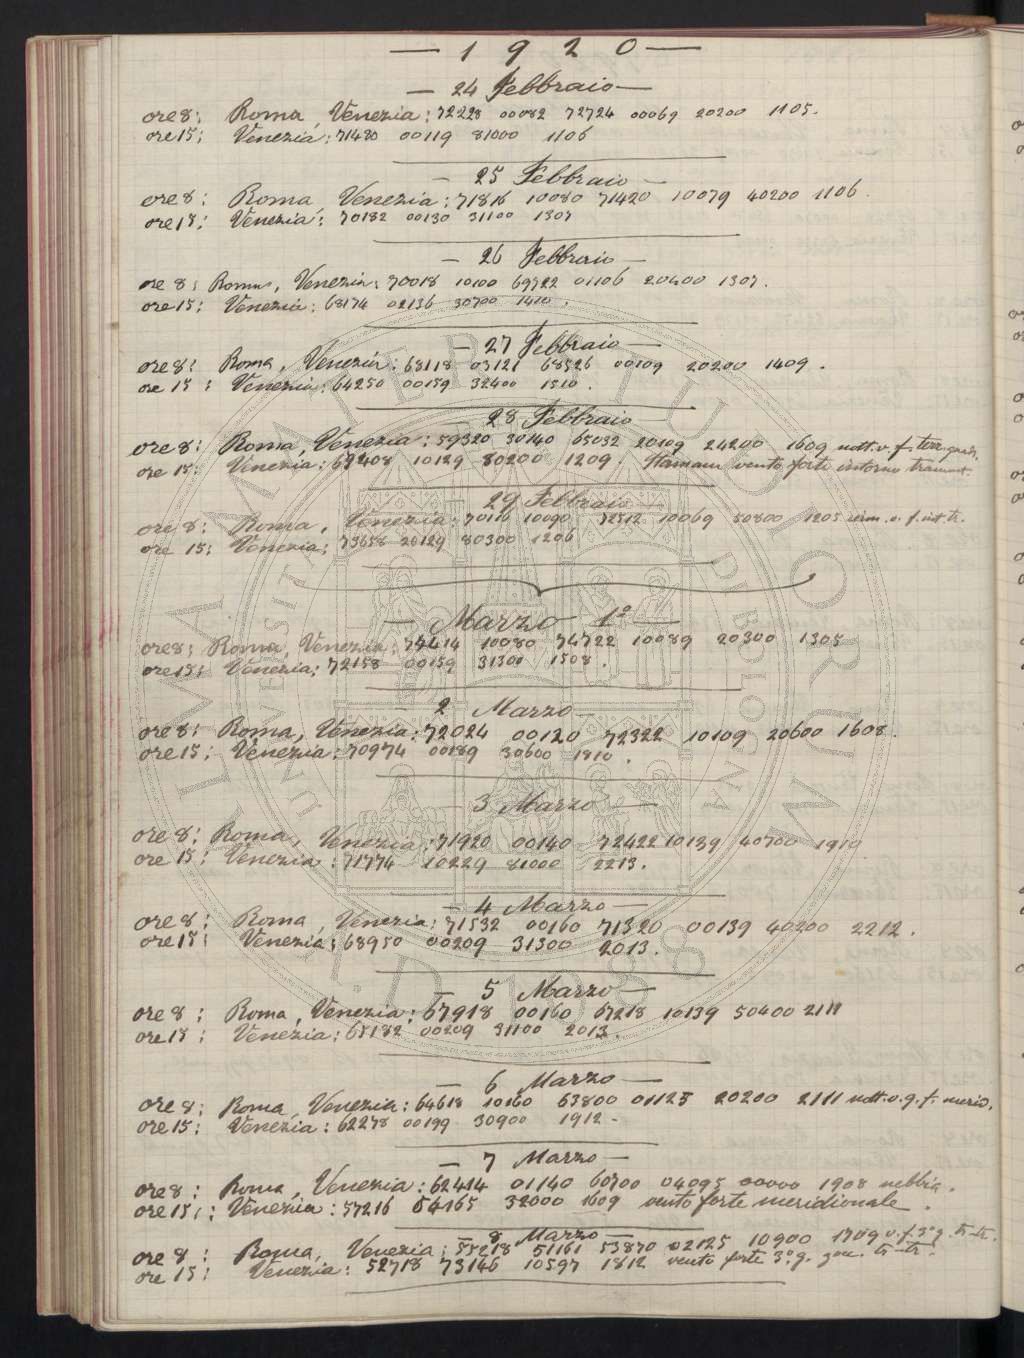 — 1 9 2 0 —
— 24 Febbraio —
ore 8: Roma, Venezia: 72228 00082 72724 00069 20200 1105.
ore 15: Venezia: 71480 00119 81000 1106
— 25 Febbraio —
ore 8: Roma, Venezia: 71816 10080 71420 10079 40200 1106.
ore 15: Venezia: 70182 00130 31100 1307
— 26 Febbraio —
ore 8: Roma, Venezia: 70018 10100 69722 01106 20400 1307.
ore 15: Venezia: 68174 02136 30700 1410.
— 27 Febbraio —
ore 8: Roma, Venezia: 63118 03121 68526 00109 20200 1409.
ore 15: Venezia: 64250 00159 32400 1510.
— 28 Febbraio
ore 8: Roma, Venezia: 59320 30140 65032 20109 24200 1609 nott. v. f.
ore 15: Venezia: 10129 80200 1209. Stamane vento forte intorno tramont.
— 29 Febbraio —
ore 8: Roma, Venezia: 70116 10090 72512 10069 50800 1205
ore 15: Venezia: 73658 20129 80300 1206
— Marzo 1º —
ore 8: Roma, Venezia: 74414 10080 74722 10089 20300 1305
ore 15: Venezia: 72158 00159 31300 1508.
— 2 Marzo —
ore 8: Roma, Venezia: 72024 00120 72322 10109 20600 1608.
ore 15: Venezia: 70974 00189 30600 1810.
— 3 Marzo —
ore 8: Roma, Venezia: 71920 00140 72422 10139 40700 1910
ore 15: Venezia: 71774 10229 81000 2213.
— 4 Marzo —
ore 8: Roma, Venezia: 71532 00160 71320 00139 40200 2212.
ore 15: Venezia: 68950 00209 31300 2013.
— 5 Marzo —
ore 8: Roma, Venezia: 67918 00160 67218 10139 50400 2111
ore 15: Venezia: 65182 00209 31100 2013.
— 6 Marzo —
ore 8: Roma, Venezia: 64618 10160 63800 01125 20200 2111 nott. v. g. f. merid.
ore 15: Venezia: 62278 00199 30900 1912 -
— 7 Marzo —
ore 8: Roma, Venezia: 62414 01140 60700 04095 00000 1908 nebbia.
ore 15: Venezia: 57216 54165 32000 1609 vento forte meridionale.
— 8 Marzo —
ore 8: Roma, Venezia: 55218 51161 53870 02125 10900 1709 v. f. 3º q. tr-tr.
ore 15: Venezia: 52718 73146 10597 1812 vento forte 3º q. tr-tr.